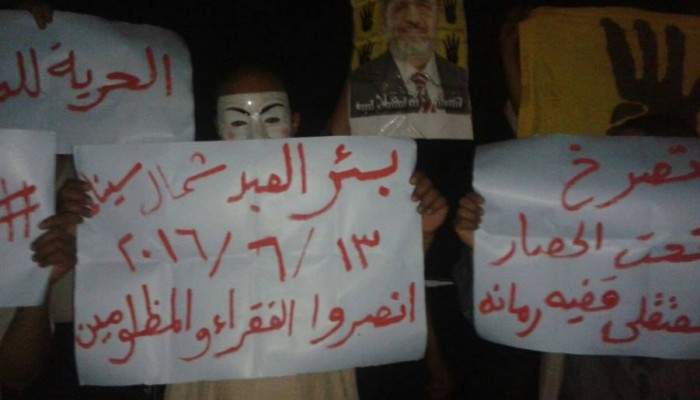 الحرية
#
بئر العبد شمال سيناء
١٣ / ٦ / ٢٠١٦
انصروا الفقراء والمظلومين
تصرخ
تحت الحصار
رمانه